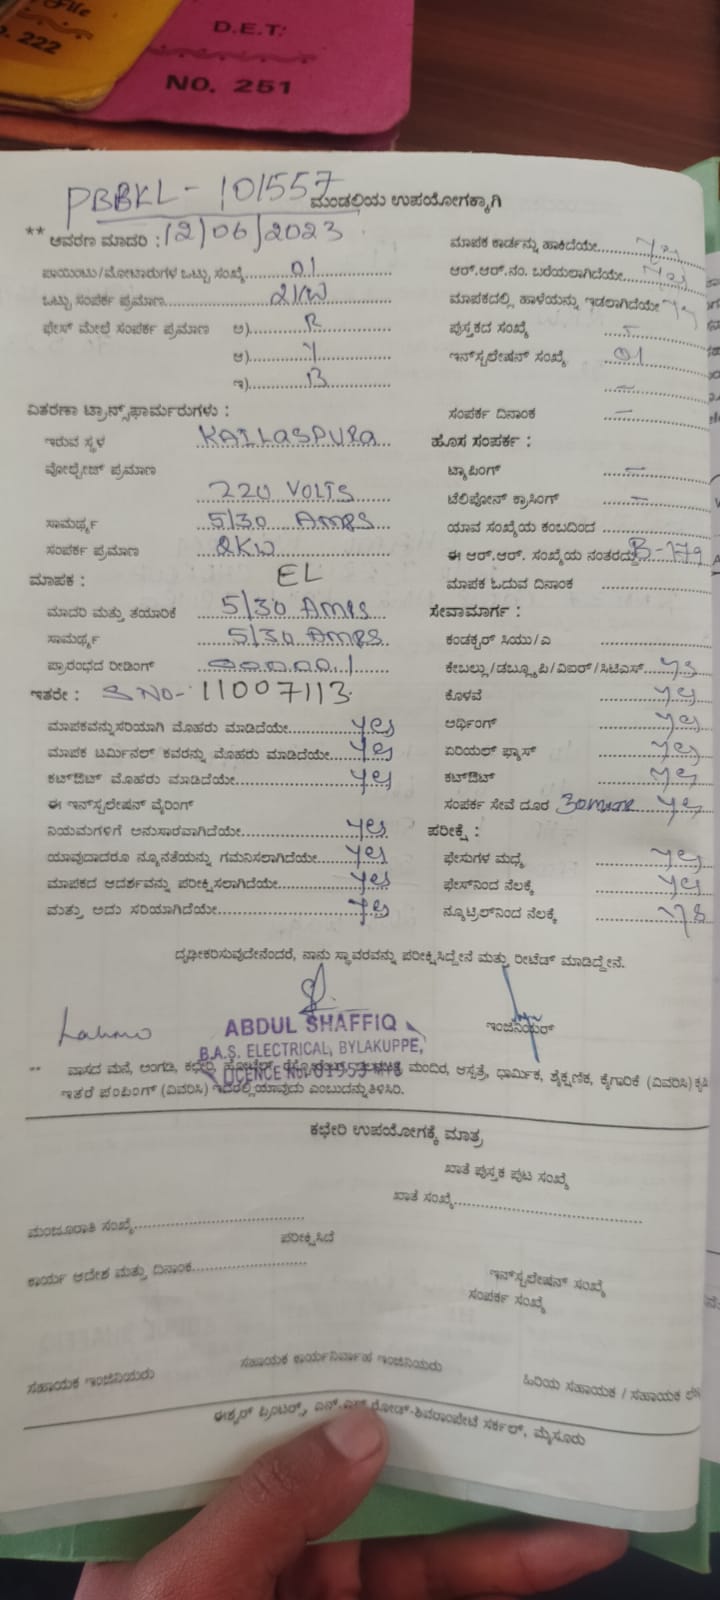 D.E.T.
NO. 251
File
222
PBBKL - 101557 ಮಂಡಲಿಯ ಉಪಯೋಗಕ್ಕಾಗಿ
** ಆವರಣ ಮಾದರಿ : 12/06/2023
ಪಾಯಿಂಟು/ಮೋಟಾರುಗಳ ಒಟ್ಟು ಸಂಖ್ಯೆ 01
ಒಟ್ಟು ಸಂಪರ್ಕ ಪ್ರಮಾಣ 2KW
ಫೇಸ್ ಮೇಲೆ ಸಂಪರ್ಕ ಪ್ರಮಾಣ ಅ) R
ಆ) Y
ಇ) B
ವಿತರಣಾ ಟ್ರಾನ್ಸ್‌ಫಾರ್ಮರುಗಳು :
ಇರುವ ಸ್ಥಳ KAILASPURA
ವೋಲ್ಟೇಜ್ ಪ್ರಮಾಣ
220 VOLTS
ಸಾಮರ್ಥ್ಯ 5/30 AMPS
ಸಂಪರ್ಕ ಪ್ರಮಾಣ 2KW
ಮಾಪಕ : EL
ಮಾದರಿ ಮತ್ತು ತಯಾರಿಕೆ 5/30 AMPS
ಸಾಮರ್ಥ್ಯ 5/30 AMPS
ಪ್ರಾರಂಭದ ರೀಡಿಂಗ್
ಇತರೇ : SNO- 11007113
ಮಾಪಕವನ್ನು ಸರಿಯಾಗಿ ಮೊಹರು ಮಾಡಿದೆಯೇ yes
ಮಾಪಕ ಟರ್ಮಿನಲ್ ಕವರನ್ನು ಮೊಹರು ಮಾಡಿದೆಯೇ yes
ಕಟ್‌ಔಟ್ ಮೊಹರು ಮಾಡಿದೆಯೇ yes
ಈ ಇನ್‌ಸ್ಟಲೇಷನ್ ವೈರಿಂಗ್
ನಿಯಮಗಳಿಗೆ ಅನುಸಾರವಾಗಿದೆಯೇ yes
ಯಾವುದಾದರೂ ನ್ಯೂನತೆಯನ್ನು ಗಮನಿಸಲಾಗಿದೆಯೇ yes
ಮಾಪಕದ ಆದರ್ಶವನ್ನು ಪರೀಕ್ಷಿಸಲಾಗಿದೆಯೇ yes
ಮತ್ತು ಅದು ಸರಿಯಾಗಿದೆಯೇ yes
ಮಾಪಕ ಕಾರ್ಡನ್ನು ಹಾಕಿದೆಯೇ yes
ಆರ್.ಆರ್.ನಂ. ಬರೆಯಲಾಗಿದೆಯೇ yes
ಮಾಪಕದಲ್ಲಿ ಹಾಳೆಯನ್ನು ಇಡಲಾಗಿದೆಯೇ yes
ಪುಸ್ತಕದ ಸಂಖ್ಯೆ -
ಇನ್‌ಸ್ಟಲೇಷನ್ ಸಂಖ್ಯೆ 01
-
ಸಂಪರ್ಕ ದಿನಾಂಕ -
ಹೊಸ ಸಂಪರ್ಕ :
ಟ್ಯಾಪಿಂಗ್ -
ಟೆಲಿಫೋನ್ ಕ್ರಾಸಿಂಗ್ -
ಯಾವ ಸಂಖ್ಯೆಯ ಕಂಬದಿಂದ
ಈ ಆರ್.ಆರ್. ಸಂಖ್ಯೆಯ ನಂತರದ್ದು B-179
ಮಾಪಕ ಓದುವ ದಿನಾಂಕ
ಸೇವಾಮಾರ್ಗ :
ಕಂಡಕ್ಟರ್ ಸಿಯು/ಎ
ಕೇಬಲ್ಲು/ಡಬ್ಲ್ಯೂಪಿ/ವಿಐಆರ್/ಸಿಟಿಎಸ್ yes
ಕೊಳವೆ yes
ಅರ್ಥಿಂಗ್ yes
ಏರಿಯಲ್ ಫ್ಯೂಸ್ yes
ಕಟ್‌ಔಟ್ yes
ಸಂಪರ್ಕ ಸೇವೆ ದೂರ yes
ಪರೀಕ್ಷೆ :
ಫೇಸುಗಳ ಮಧ್ಯೆ yes
ಫೇಸ್‌ನಿಂದ ನೆಲಕ್ಕೆ yes
ನ್ಯೂಟ್ರಲ್‌ನಿಂದ ನೆಲಕ್ಕೆ yes
ದೃಢೀಕರಿಸುವುದೇನೆಂದರೆ, ನಾನು ಸ್ಥಾವರವನ್ನು ಪರೀಕ್ಷಿಸಿದ್ದೇನೆ ಮತ್ತು ರೀಟೆಡ್ ಮಾಡಿದ್ದೇನೆ.
ABDUL SHAFFIQ
ಇಂಜಿನಿಯರ್
B.A.S. ELECTRICAL, BYLAKUPPE,
** ವಾಸದ ಮನೆ, ಅಂಗಡಿ, ಕಛೇರಿ, ಹೋಟೆಲ್, ಮಂದಿರ, ಆಸ್ಪತ್ರೆ, ಧಾರ್ಮಿಕ, ಶೈಕ್ಷಣಿಕ, ಕೈಗಾರಿಕೆ (ವಿವರಿಸಿ) ಕೃಷಿ
LICENCE No.
ಇತರೆ ಪಂಪಿಂಗ್ (ವಿವರಿಸಿ) ಇದರಲ್ಲಿ ಯಾವುದು ಎಂಬುದನ್ನು ತಿಳಿಸಿರಿ.
ಕಛೇರಿ ಉಪಯೋಗಕ್ಕೆ ಮಾತ್ರ
ಖಾತೆ ಪುಸ್ತಕ ಪುಟ ಸಂಖ್ಯೆ
ಖಾತೆ ಸಂಖ್ಯೆ
ಮಂಜೂರಾತಿ ಸಂಖ್ಯೆ
ಪರೀಕ್ಷಿಸಿದೆ
ಕಾರ್ಯ ಆದೇಶ ಮತ್ತು ದಿನಾಂಕ
ಇನ್‌ಸ್ಟಲೇಷನ್ ಸಂಖ್ಯೆ
ಸಂಪರ್ಕ ಸಂಖ್ಯೆ
ಸಹಾಯಕ ಇಂಜಿನಿಯರು
ಸಹಾಯಕ ಕಾರ್ಯನಿರ್ವಾಹ ಇಂಜಿನಿಯರು
ಹಿರಿಯ ಸಹಾಯಕ / ಸಹಾಯಕ
ಈಶ್ವರ್ ಪ್ರಿಂಟರ್ಸ್, ರೋಡ್-ಶಿವರಾಂಪೇಟೆ ಸರ್ಕಲ್, ಮೈಸೂರು